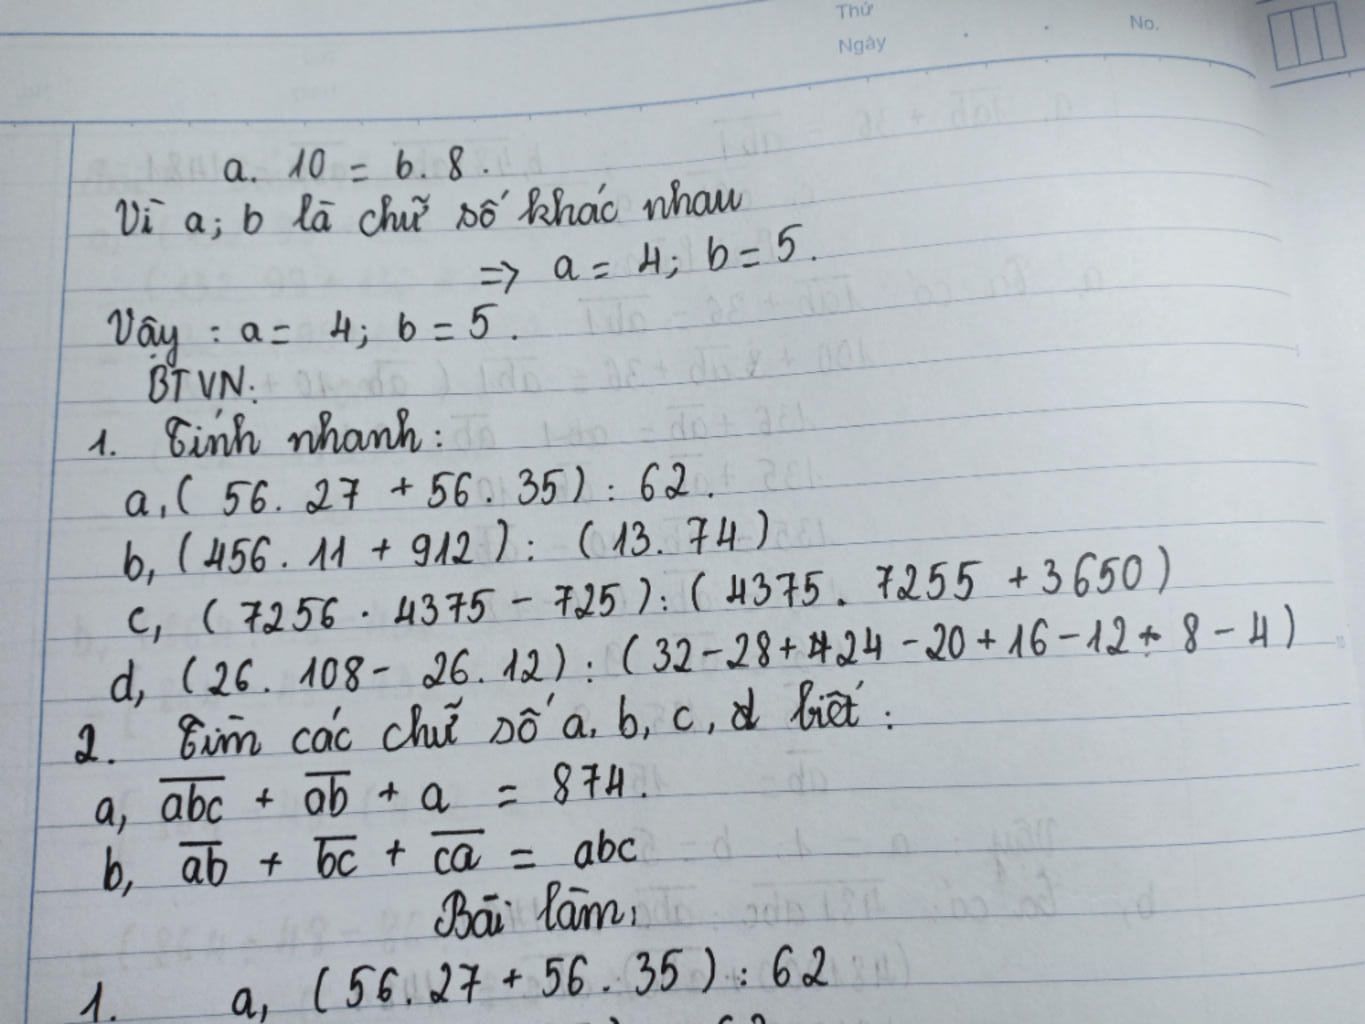 Thứ
Ngày
No.
a. 10 = b. 8.
Vì a; b là chữ số khác nhau
=> a = 4; b = 5.
Vậy : a = 4; b = 5.
BTVN:
1. Tính nhanh:
a, ( 56. 27 + 56. 35) : 62.
b, (456. 11 + 912) : (13. 74)
c, (7256 . 4375 - 725) : (4375. 7255 + 3650)
d, (26. 108 - 26. 12) : (32-28+24-20+16-12+8-4)
2. Tìm các chữ số a, b, c, d biết :
a, \overline{abc} + \overline{ab} + a = 874.
b, \overline{ab} + \overline{bc} + \overline{ca} = abc
Bài làm:
1. a, (56.27 + 56. 35) : 62